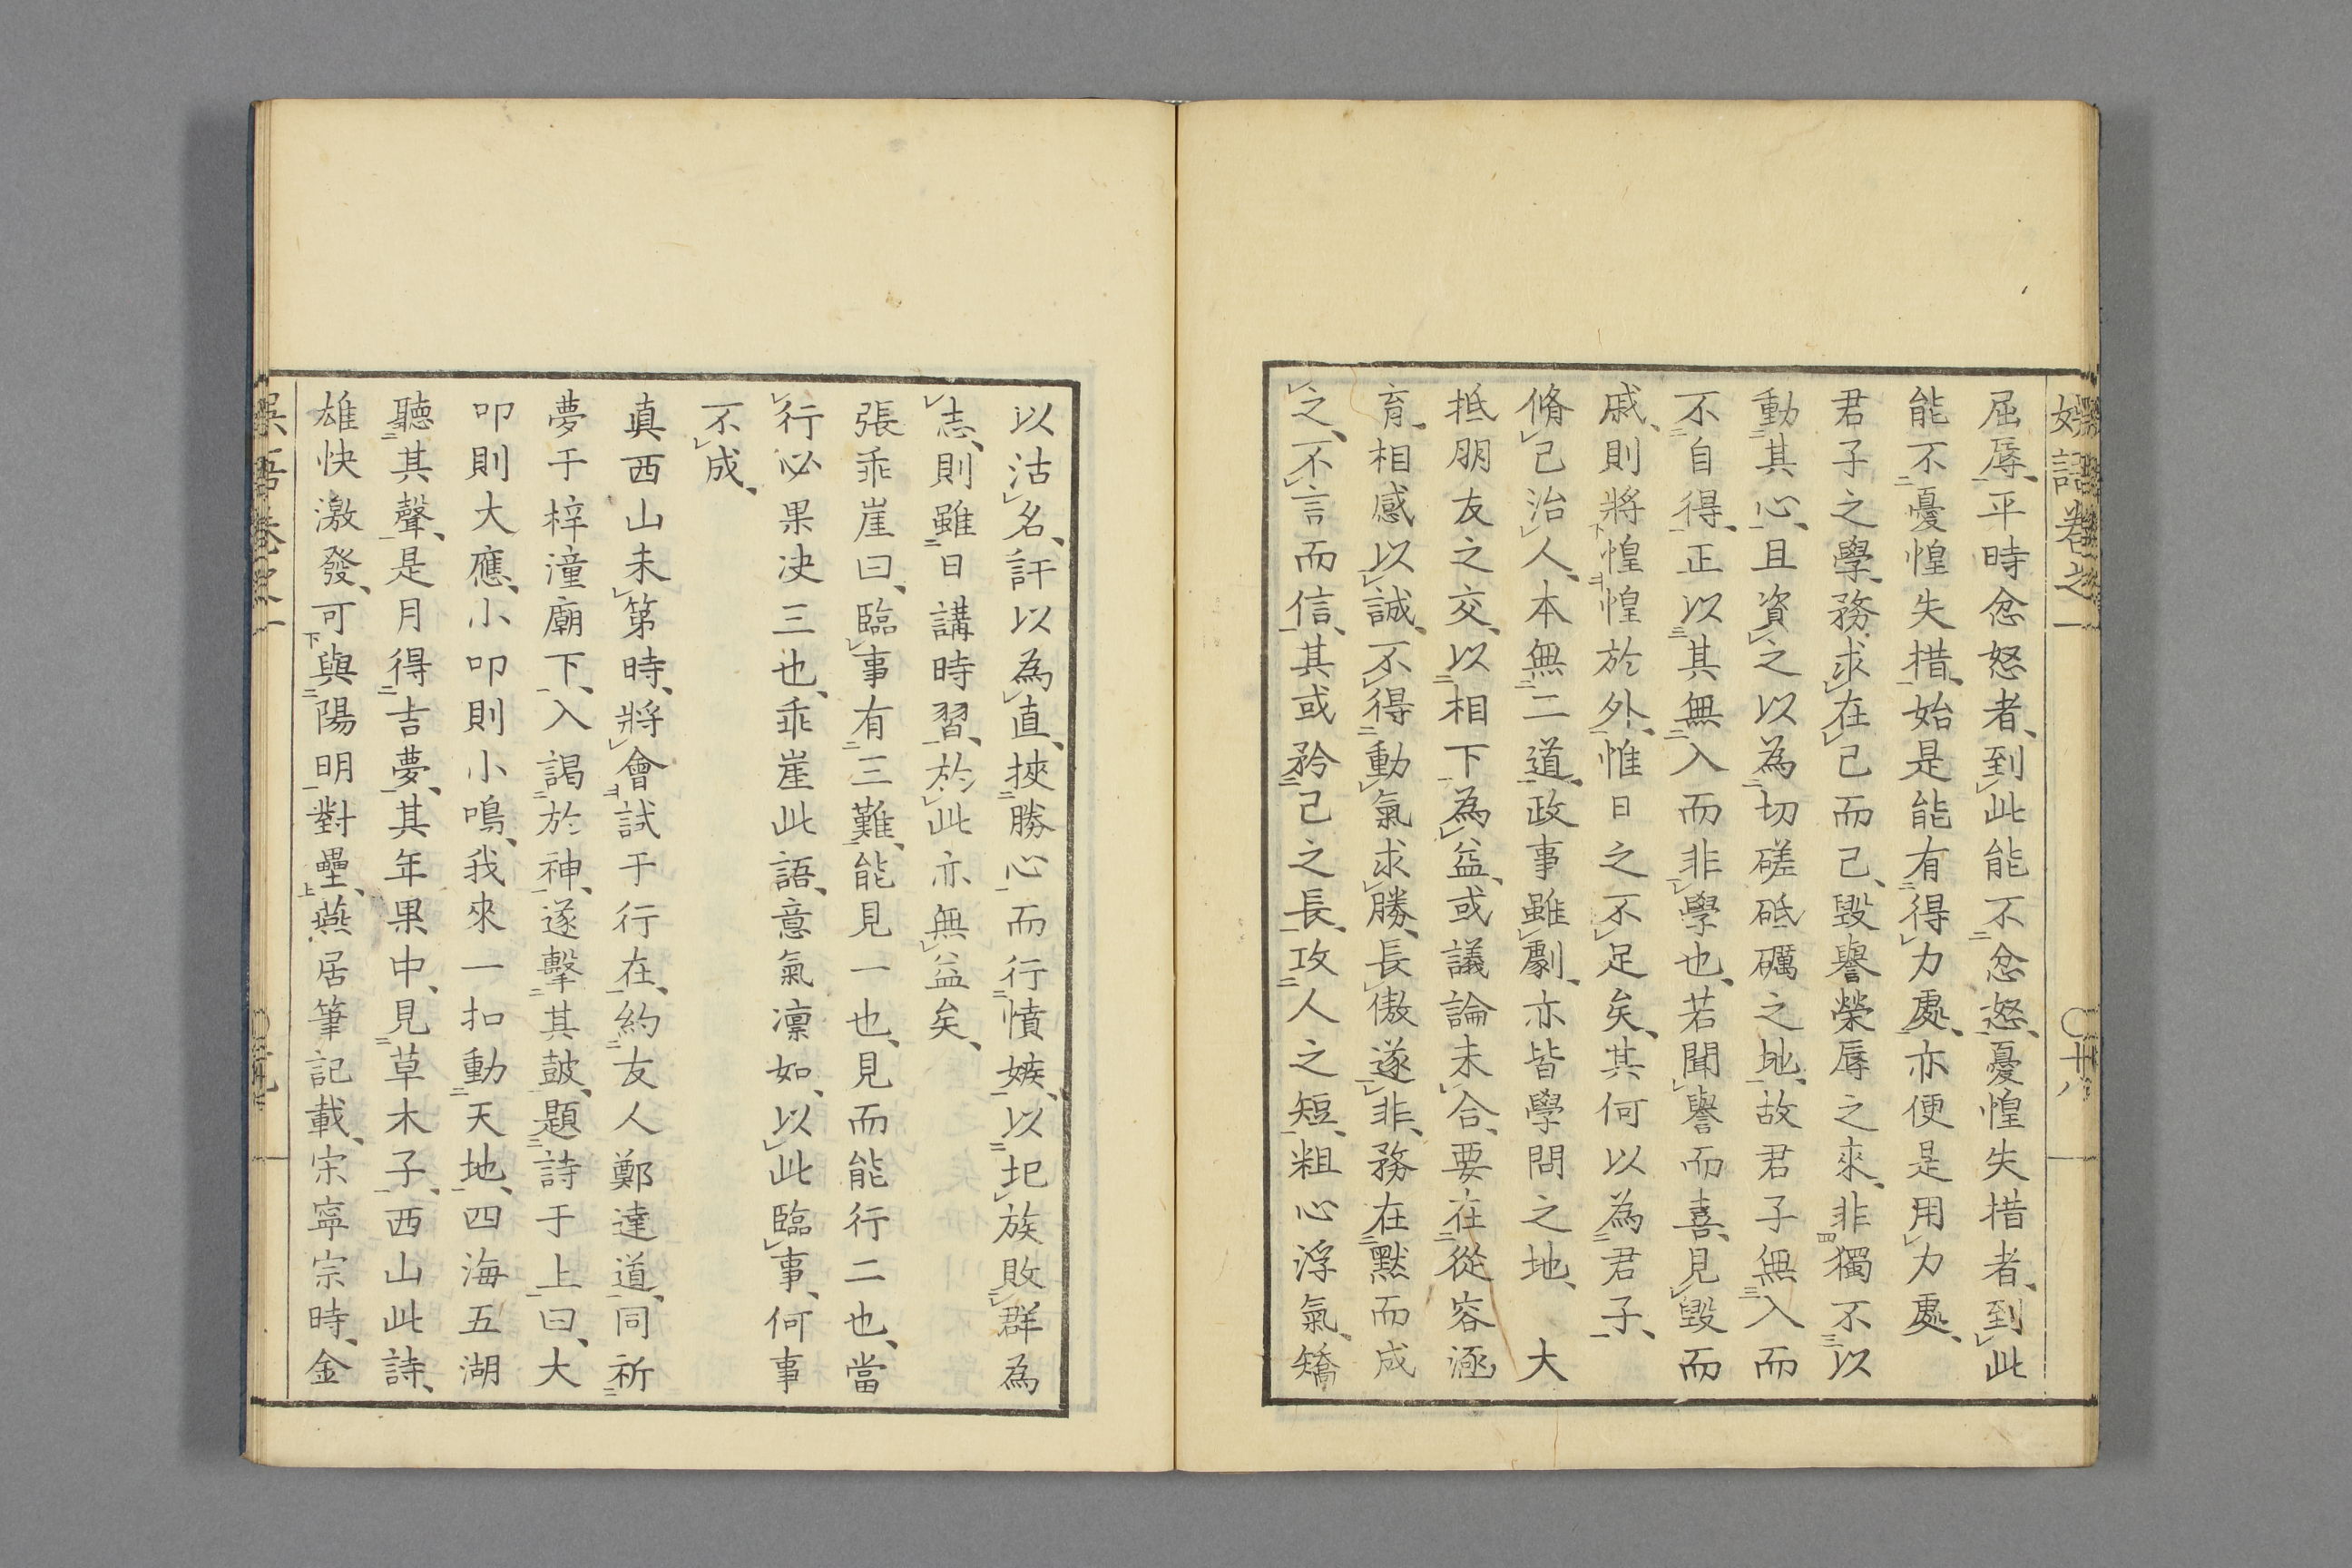 娯語卷之一 〇廿八
屈辱、平時忿怒者、到此能不忿怒、憂惶失措者、到此
能不憂惶失措、始是能有得力處、亦便是用力處、
君子之學、務求在己而己、毀譽榮辱之來、非獨不以
動其心、且資之以為切磋砥礪之地、故君子無入而
不自得、正以其無入而非學也、若聞譽而喜、見毀而
戚、則將惶惶於外、惟日之不足矣、其何以為君子、
脩己治人、本無二道、政事雖劇、亦皆學問之地、 大
抵朋友之交、以相下為益、或議論未合、要在從容涵
育、相感以誠、不得動氣求勝、長傲遂非、務在默而成
之、不言而信、其或矜己之長、攻人之短、粗心浮氣、矯
以沽名、訐以為直、挾勝心而行憤嫉、以圮族敗群為
志、則雖日講時習、於此亦無益矣、
張乖崖曰、臨事有三難、能見一也、見而能行二也、當
行必果決三也、乖崖此語、意氣凜如、以此臨事、何事
不成、
真西山未第時、將會試于行在、約友人鄭達道、同祈
夢于梓潼廟下、入謁於神、遂擊其鼓、題詩于上曰、大
叩則大應、小叩則小鳴、我來一扣動天地、四海五湖
聽其聲、是月得吉夢、其年果中、見草木子、西山此詩、
雄快激發、可與陽明對壘、燕居筆記載、宋寧宗時、金